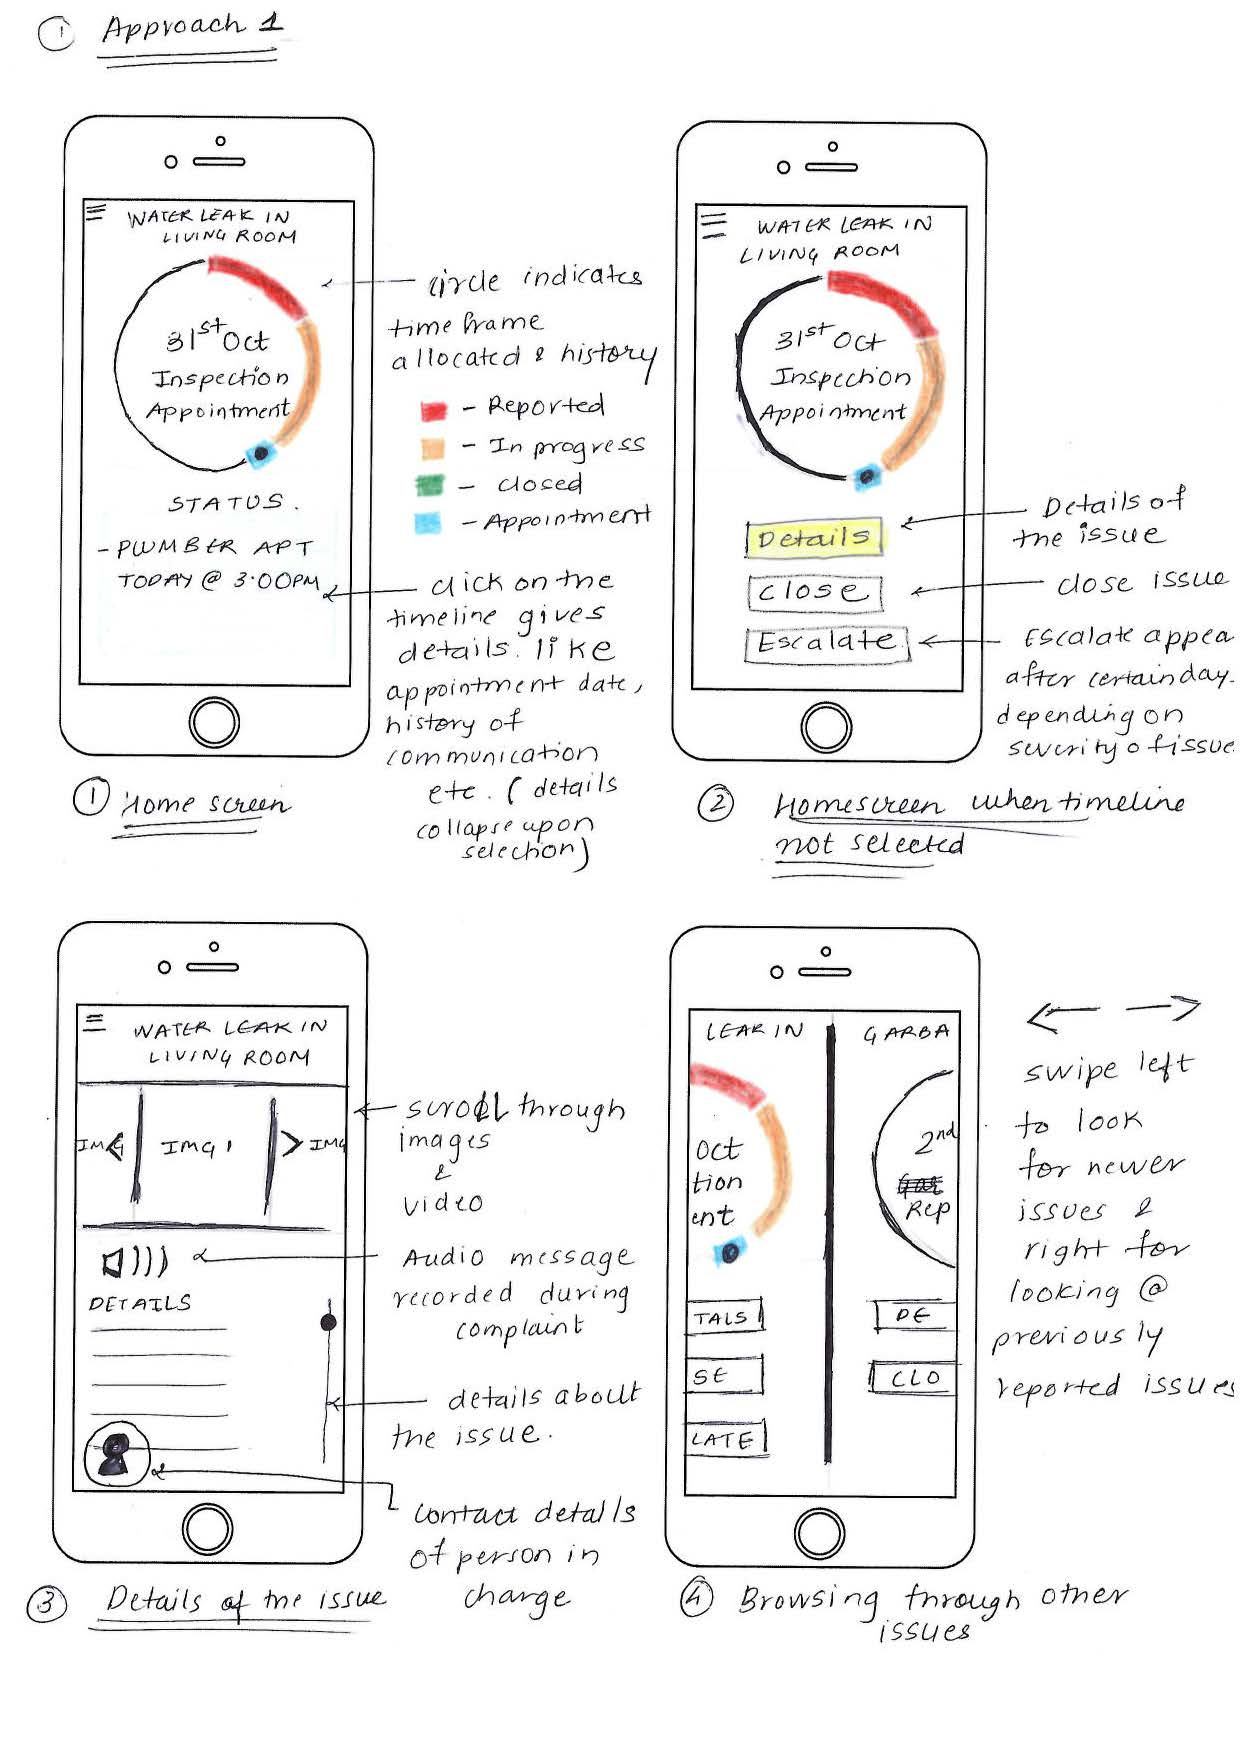 ① Approach 1
WATER LEAK IN
LIVING ROOM
31st Oct
Inspection
Appointment
STATUS.
- PLUMBER APT
TODAY @ 3:00PM
circle indicates
time frame
allocated & history
- Reported
- In progress
- closed
- Appointment
click on the
timeline gives
details. like
appointment date,
history of
communication
etc. ( details
collapse upon
selection)
① Home screen
WATER LEAK IN
LIVING ROOM
31st Oct
Inspection
Appointment
Details
close
Escalate
Details of
the issue
close issue
Escalate appea
after certain day.
depending on
severity of issue
② Homescreen when timeline
not selected
WATER LEAK IN
LIVING ROOM
IMG
IMG 1
IMG
DETAILS
scroll through
images
&
video
Audio message
recorded during
complaint
details about
the issue.
contact details
of person in
charge
③ Details of the issue
LEAK IN
GARBA
Oct
tion
ent
2nd
Rep
TALS
SE
LATE
DE
CLO
swipe left
to look
for newer
issues &
right for
looking @
previously
reported issues
④ Browsing through other
issues